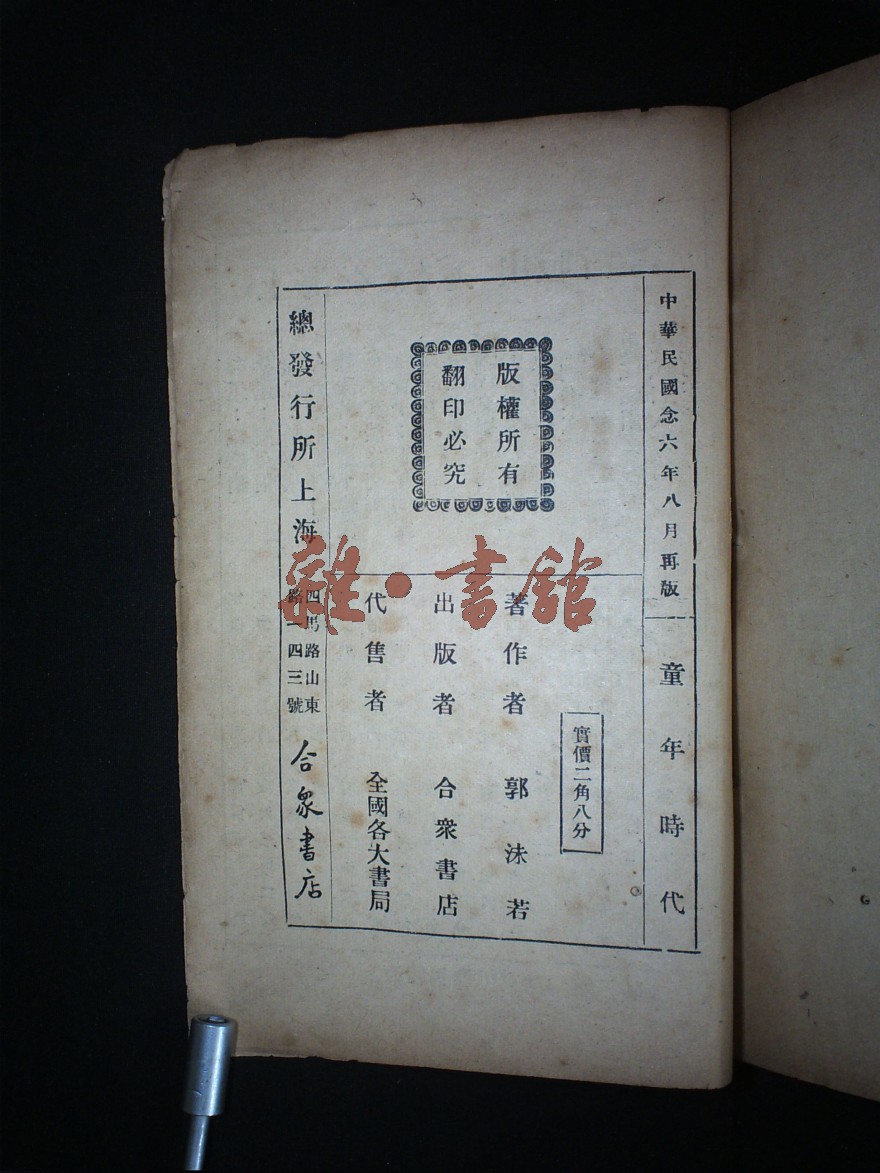 中華民國念六年八月再版
童年時代
版權所有
翻印必究
實價二角八分
著作者 郭沫若
出版者 合衆書店
代售者 全國各大書局
總發行所上海
四馬路山東
路一四三號
合衆書店
雜·書館